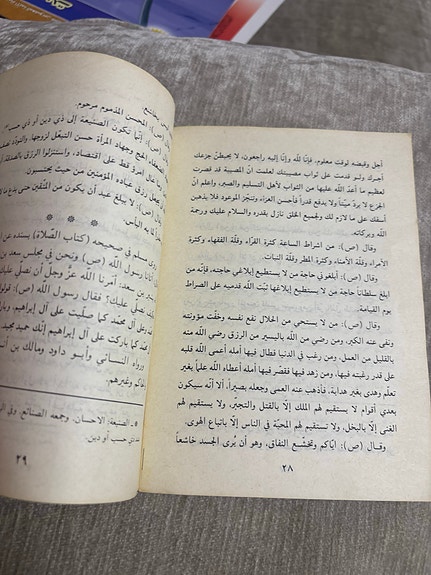 أجل وقبضه لوقت معلوم، فإنّا لله وإنّا إليه راجعون، لا يحبطنّ جزعك
أجرك ولو قدمت على ثواب مصيبتك لعلمت انّ المصيبة قد قصرت
لعظيم ما أعدّ الله عليها من الثواب لأهل التسليم والصبر، واعلم انّ
الجزع لا يردّ ميّتاً ولا يدفع قدراً فأحسن العزاء وتنجّز الموعود فلا يذهبن
أسفك على ما لازم لك ولجميع الخلق نازل بقدره والسلام عليك ورحمة
الله وبركاته.
وقال (ص): من اشراط الساعة كثرة القرّاء وقلّة الفقهاء وكثرة
الأمراء وقلّة الأمناء وكثرة المطر وقلّة النبات.
وقال (ص): أبلغوني حاجة من لا يستطيع إبلاغي حاجته، فإنّه من
أبلغ سلطاناً حاجة من لا يستطيع إبلاغها ثبّت الله قدميه على الصراط
يوم القيامة.
وقال (ص): من لا يستحي من الحلال نفع نفسه وخفّت مؤونته
ونفى عنه الكبر، ومن رضي من الله باليسير من الرزق رضي الله منه
بالقليل من العمل، ومن رغب في الدنيا فطال فيها أمله أعمى الله قلبه
على قدر رغبته فيها، ومن زهد فيها فقصّر فيها أمله أعطاه الله علماً بغير
تعلّم وهدى بغير هداية، فأذهب عنه العمى وجعله بصيراً، ألا أنّه سيكون
بعدي أقوام لا يستقيم لهم الملك إلّا بالقتل والتجبّر، ولا يستقيم لهم
الغنى إلّا بالبخل، ولا تستقيم لهم المحبّة في الناس إلّا باتباع الهوى.
وقـال (ص): ايّاكم وتخشّـع النفاق، وهو أن يُرى الجسد خاشعاً
٢٨
(ص): المحسن المذموم مرحوم.
(ص): إنّما تكون الصنيعة إلى ذي دين أو ذي حسب
الحج وجهاد المرأة حسن التبعّل لزوجها، والتودّد نصف
امرؤ قط على اقتصاد، واستنزلوا الرزق بالصدقة
يجعل رزق عباده المؤمنين من حيث يحتسبون.
(ص): لا يبلغ عبد أن يكون من المتّقين حتى يدع ما
به البأس.
* * *
روى مسلم في صحيحه (كتاب الصّلاة) بسنده عن
أتانا رسول الله (ص) ونحن في مجلس سعد بن
بن سعد: أمرنا الله عزّ وجلّ أن نصلّي عليك
نصلّي عليك؟ فقال رسول الله (ص): قولوا
وعلى آل محمّد كما صلّيت على آل إبراهيم، وبارك
محمّد كما باركت على آل إبراهيم إنّك حميد مجيد.
ورواه النسـائي وأبـو داود ومالك بن أنس
والحاكم وغيرهم.
الصنيعة: الاحسان. وجمعه الصنائع،
حسب أو دين.
٢٩